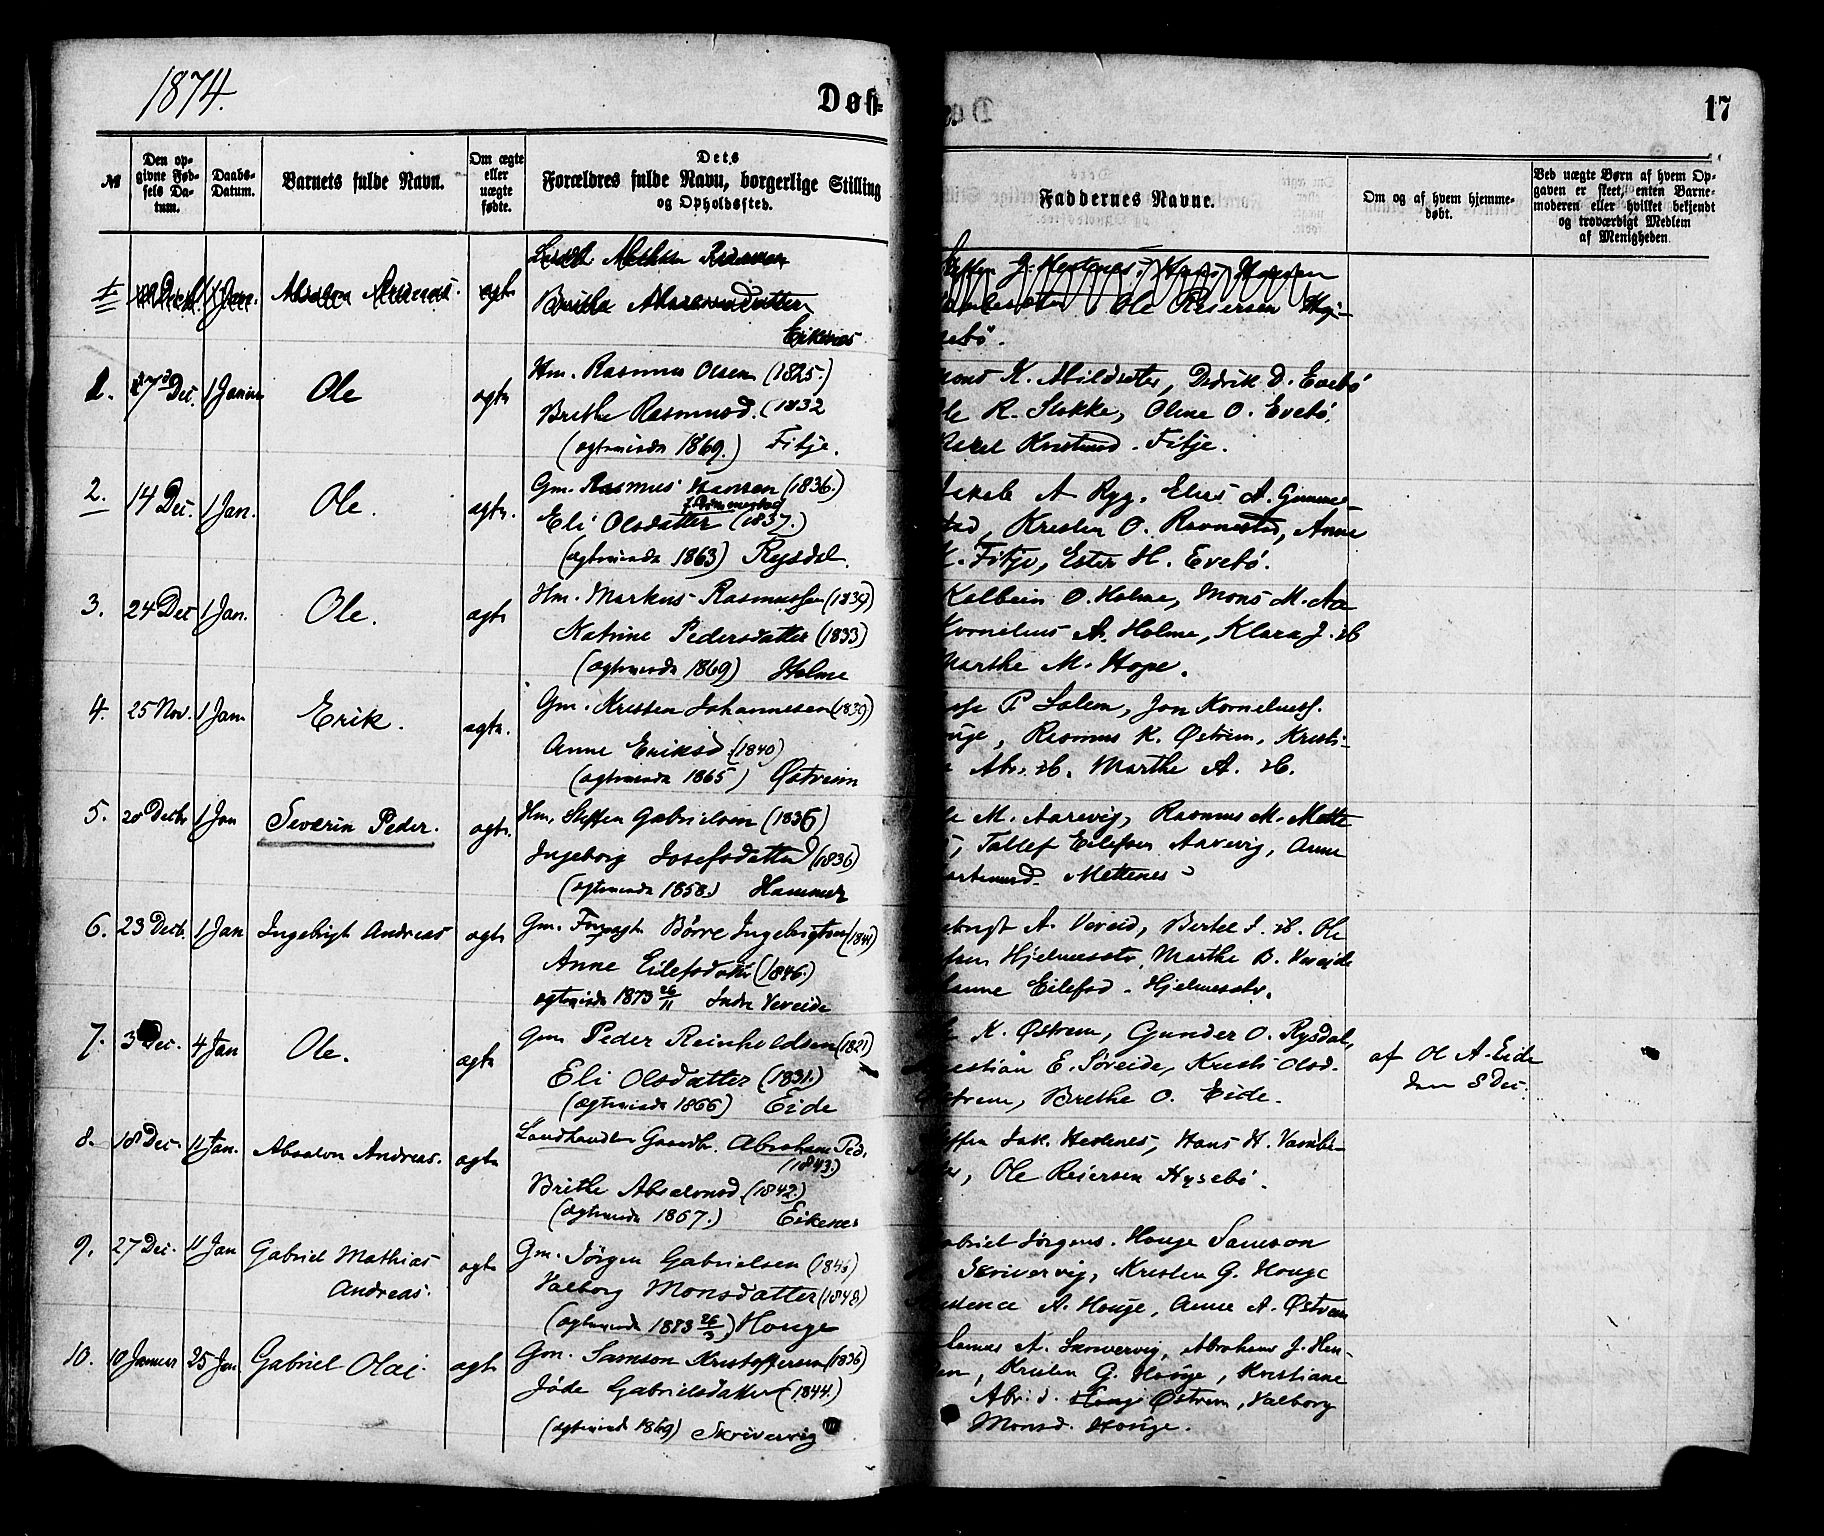 1874.
Døb-
17
№
Den opgivne Fødsels Datum.
Daabs-Datum.
Barnets fulde Navn.
Om ægte eller uægte fødte.
Dets Forældres fulde Navn, borgerlige Stilling og Opholdssted.
Faddernes Navne.
Om og af hvem hjemmedøbt.
Ved uægte Børn af hvem Opgaven er skeet, enten Barnemoderen eller hvilket bekjendt og troværdigt Medlem af Menigheden.
1 Jan. Absalon Andreas. ægte
Eikenæs
Ole Reiersen Hy-
sebø.
1. Dec. 1 Januar Ole ægte Hm. Rasmus Olsen (1825.)
Brithe Rasmusd. (1832
(ægteviede 1869.) Fitje.
Mons K. Mildsæter, Dedrik D. Evebø
Ole R. Stokke, Oline O. Evebø,
Kristensd. Fitje.
2. 14 Dec. 1 Jan. Ole. ægte. Gm. Rasmus Hansen (1836.)
Eli Olsdatter (1837.)
(ægteviede 1863) Rysdal.
A Ryg. Elias A. Gimme-
stad, Kristen O. Ravnestad, Anne
K. Fitje, Ester H. Evebø.
3. 24 Dec 1 Jan. Ole. ægte Hm. Markus Rasmussen (1839)
Katrine Pedersdatter (1833)
(ægteviede 1869) Holme
Kolbein O. Holme, Mons M. Aa
Kornelius A. Holme, Klara J. ib
Marthe M. Hope.
4. 25 Nov. 1 Jan. Erik. ægte. Gm. Kristen Johannesen (1839)
Anne Eriksd. (1840)
(ægteviede 1865) Østreim
P Solem, Jon Korneliuss.
Houge, Rasmus K. Østrem, Kristi-
Abr. ib. Marthe A. ib.
5. 20 Decbr 1 Jan Severin Peder. ægte. Hm. Steffen Gabrielsen (1836)
Ingeborg Josefsdatter (1836)
(ægteviede 1858.) Hammer
M. Aarevig, Rasmus M. Mette
Tollef Eilefsen Aarevig, Anne
Mettenes
6. 23 Decb. 1 Jan Ingebrigt Andreas ægte Gm. Børre Ingebrigtsen (1841)
Anne Eilefsdatter (1846.)
ægteviede 1873 26/11 Indre Vereide
A. Vereid, Bertel I. ib. Ole
Marthe B. Vereide
Eilefsd. Hjelmesætr.
7. 3 Dec. 4 Jan Ole. ægte Gm Peder Reinholdsen (1821)
Eli Olsdatter (1831.)
(ægteviede 1866) Eide
K. Østrem, Gunder O. Rysdal,
Kristian E. Søreide, Kristi Olsd.
Østrem, Brethe O. Eide.
af Ol A. Eide
den 8 Dec.
8. 18 Dec. 11 Jan. Absalon Andreas. ægte Landhandler Gaardbr. Abraham Ped.
(1843.)
Brithe Absalonsd. (1842.)
(ægteviede 1867.) Eikenes
Steffen Jak. Hestenes, Hans H. Vambe-
Ole Reiersen Hysebø.
9. 27 Dec. 11 Jan Gabriel Mathias
Andreas.
ægte Gm. Jørgen Gabrielsen
Valborg Monsdatter (1848)
(ægteviede 1873 26/3) Houge
Gabriel Jørgens. Houge Samson
Skrivervig, Kristen G. Houge
A. Houge, Anne A. Østrem
10. 10 Januar 25 Jan Gabriel Olai. ægte Gm. Samson Kristoffersen (1836)
Jøde Gabrielsdatter (1844.)
(ægteviede 1869) Skrivervig
A. Skrivervig, Abraham J. Hen-
Kristen G. Houge, Kristiane
Abr.d. Houge Østrem, Valborg
Monsd. Houge.